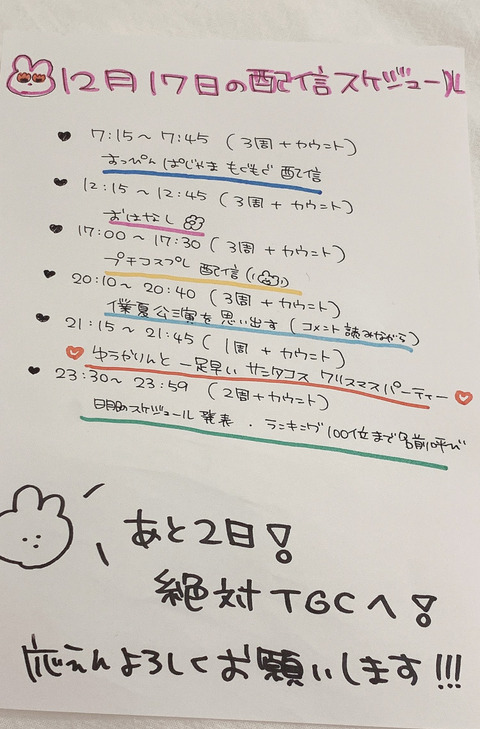 12月17日の配信スケジュール
7:15〜7:45 (3周+カウント)
すっぴん ぱじゃま もぐもぐ 配信
12:15〜12:45 (3周+カウント)
おはなし
17:00〜17:30 (3周+カウント)
プチコスプレ 配信
20:10〜20:40 (3周+カウント)
僕夏公演を思い出す (コメント読みながら)
21:15〜21:45 (1周+カウント)
ゆうかりんと一足早い サンタコス クリスマスパーティー
23:30〜23:59 (2周+カウント)
明日のスケジュール 発表・ランキング100位まで名前呼び
あと2日!
絶対TGCへ!
応えんよろしくお願いします!!!